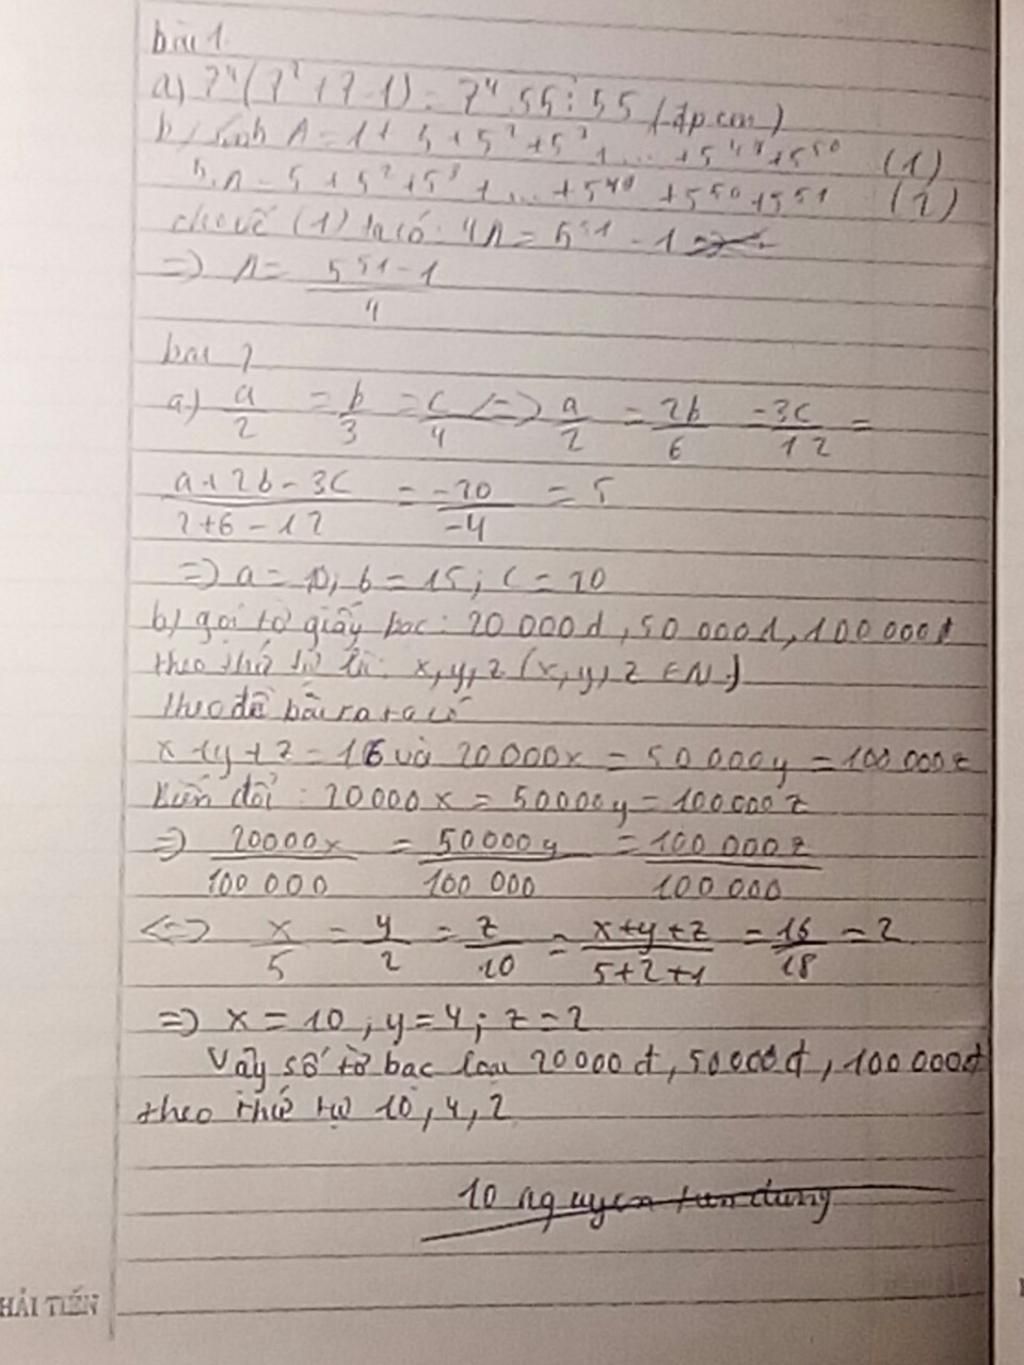 bài 1
a) 7⁴(7²+7-1) = 7⁴.55⋮55 (đpcm)
b) tính A = 1 + 5 + 5² + 5³ + ... + 5⁴⁹ + 5⁵⁰ (1)
5.A = 5 + 5² + 5³ + ... + 5⁴⁹ + 5⁵⁰ + 5⁵¹ (2)
(1) ta có: 4A = 5⁵¹ - 1
=> A = 5⁵¹-1 / 4
bài 2
a) a/2 = b/3 = c/4 <=> a/2 = 2b/6 = 3c/12 =
a+2b-3c / 2+6-12 = -20/-4 = 5
=> a = 10; b = 15; c = 20
b) gọi tờ giấy bac: 20 000đ, 50 000đ, 100 000đ
theo thứ tự là: x, y, z (x, y, z ∈ N*)
theo đề bài ra ta có
x+y+z = 16 và 20 000x = 50 000y = 100 000z
Biến đổi: 20000x = 50000y = 100000z
=> 20000x/100 000 = 50000y/100 000 = 100 000z/100 000
<=> x/5 = y/2 = z/10 = x+y+z/5+2+1 = 16/18 = 2
=> x = 10; y = 4; z = 2
Vậy số tờ bạc loại 20000đ, 50000đ, 100 000đ
theo thứ tự 10, 4, 2
HẢI TIẾN